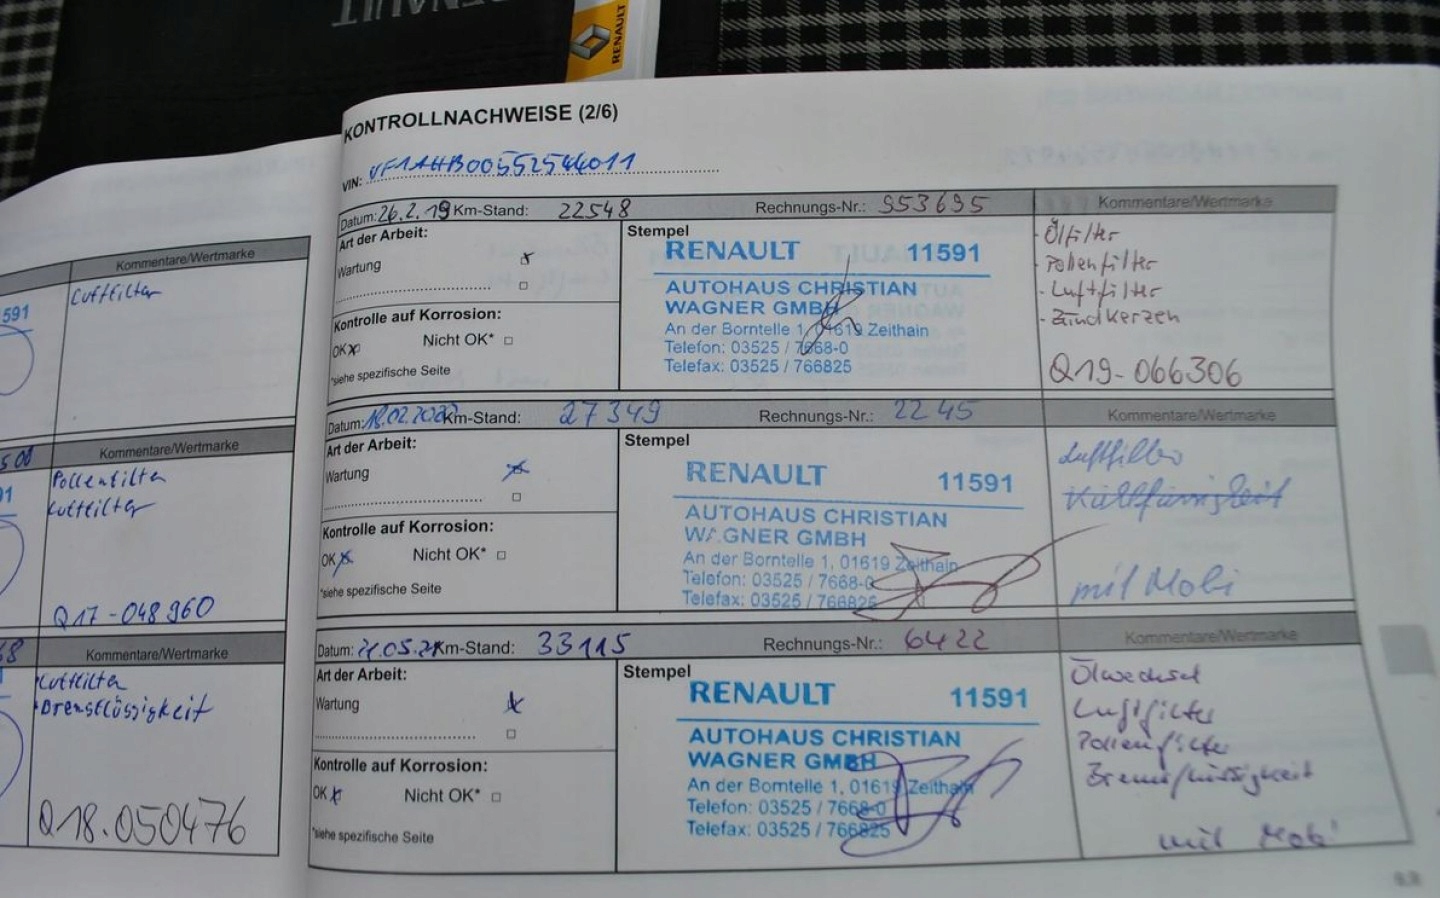 RENAULT
RENAULT
591
Kommentare/Wertmarke
Luftfilter
Kommentare/Wertmarke
Pollenfilter
Luftfilter
Q17-048960
Kommentare/Wertmarke
Luftfilter
Bremsflüssigkeit
Q18.050476
KONTROLLNACHWEISE (2/6)
VIN: VF1AHB00552544011
Datum: 26.2.19 Km-Stand: 22548 Rechnungs-Nr.: 953695 Kommentare/Wertmarke
Art der Arbeit:
Wartung
Kontrolle auf Korrosion:
OK Nicht OK*
*siehe spezifische Seite
Stempel
RENAULT 11591
AUTOHAUS CHRISTIAN
WAGNER GMBH
An der Borntelle 1, 01619 Zeithain
Telefon: 03525 / 7668-0
Telefax: 03525 / 766825
- Ölfilter
- Pollenfilter
- Luftfilter
- Zündkerzen
Q19-066306
Datum: 18.02.2020 Km-Stand: 27349 Rechnungs-Nr.: 2245 Kommentare/Wertmarke
Art der Arbeit:
Wartung
Kontrolle auf Korrosion:
OK Nicht OK*
*siehe spezifische Seite
Stempel
RENAULT 11591
AUTOHAUS CHRISTIAN
WAGNER GMBH
An der Borntelle 1, 01619 Zeithain
Telefon: 03525 / 7668-0
Telefax: 03525 / 766825
Luftfilter
mit Mobi
Datum: 21.05.21 Km-Stand: 33115 Rechnungs-Nr.: 6422 Kommentare/Wertmarke
Art der Arbeit:
Wartung
Kontrolle auf Korrosion:
OK Nicht OK*
*siehe spezifische Seite
Stempel
RENAULT 11591
AUTOHAUS CHRISTIAN
WAGNER GMBH
An der Borntelle 1, 01619 Zeithain
Telefon: 03525 / 7668-0
Telefax: 03525 / 766825
Ölwechsel
Luftfilter
Pollenfilter
Bremsflüssigkeit
mit Mobi